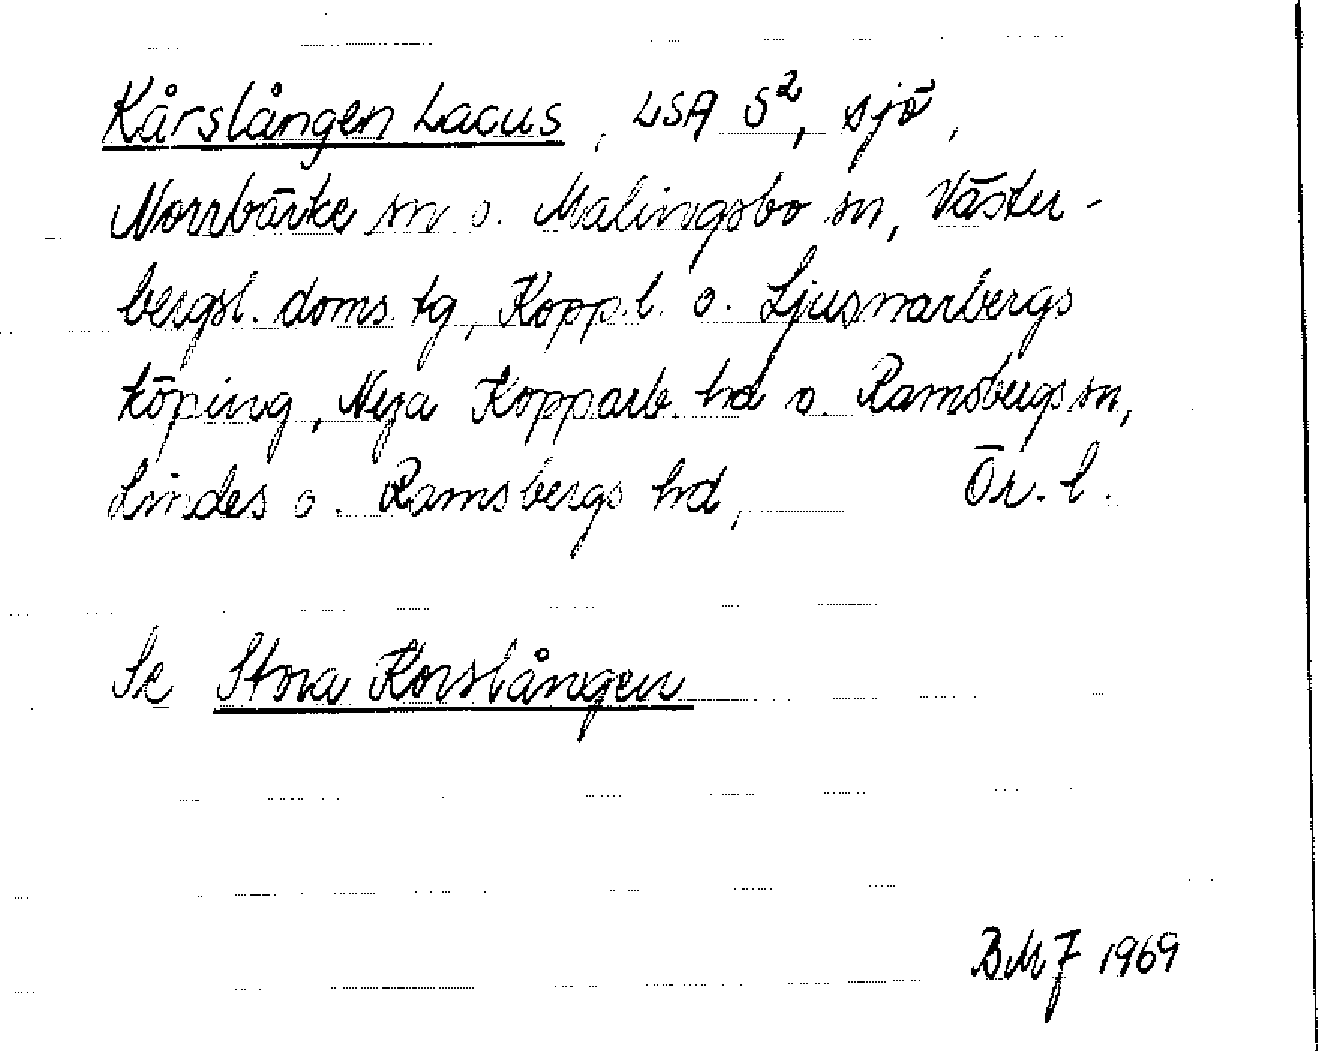 Kårslången Lacus, LSA S², sjö,
Norrbärke sn o. Malingsbo sn, Väster-
bergsl. doms. tg, Kopp. l. o. Ljusnarbergs
köping, Nya Kopparb. hd o. Ramsbergs sn,
Lindes o. Ramsbergs hd, Ör. l.
Se Stora Korslången
BMF 1969